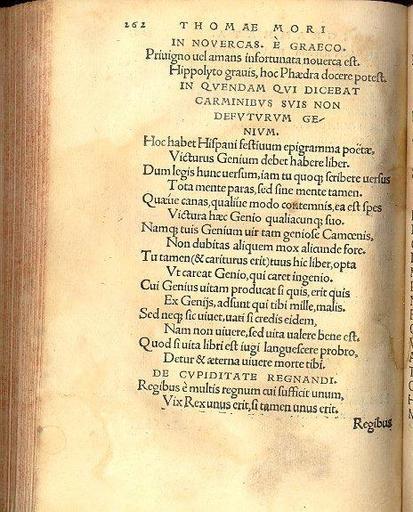 262 THOMAE MORI
IN NOVERCAS. È GRAECO.
Priuigno uel amans infortunata nouerca est.
Hippolyto grauis, hoc Phædra docere potest.
IN QUENDAM QVI DICEBAT
CARMINIBVS SVIS NON
DEFVTVRVM GE-
NIVM.
Hoc habet Hispani festiuum epigramma poëtæ,
Victurus Genium debet habere liber.
Dum legis hunc uersum, iam tu quoq; scribere uersus
Tota mente paras, sed sine mente tamen.
Quaúue canas, qualíue modo contemnis, ea est spes
Victura hæc Genio qualiacunq; suo.
Namq; tuis Genium uir tam geniose Camœnis,
Non dubitas aliquem mox alicunde fore.
Tu tamen (& cariturus erit) tuus hic liber, opta
Vt careat Genio, qui caret ingenio.
Cui Genius uitam producat si quis, erit quis
Ex Genijs, adsunt qui tibi mille, malis.
Sed neq; sic uiuet, uati si credis eidem,
Nam non uiuere, sed uita ualere bene est.
Quod si uita libri est iugi languescere probro,
Detur & æterna uiuere morte tibi.
DE CVPIDITATE REGNANDI.
Regibus è multis regnum cui sufficit unum,
Vix Rex unus erit, si tamen unus erit.
Regibus